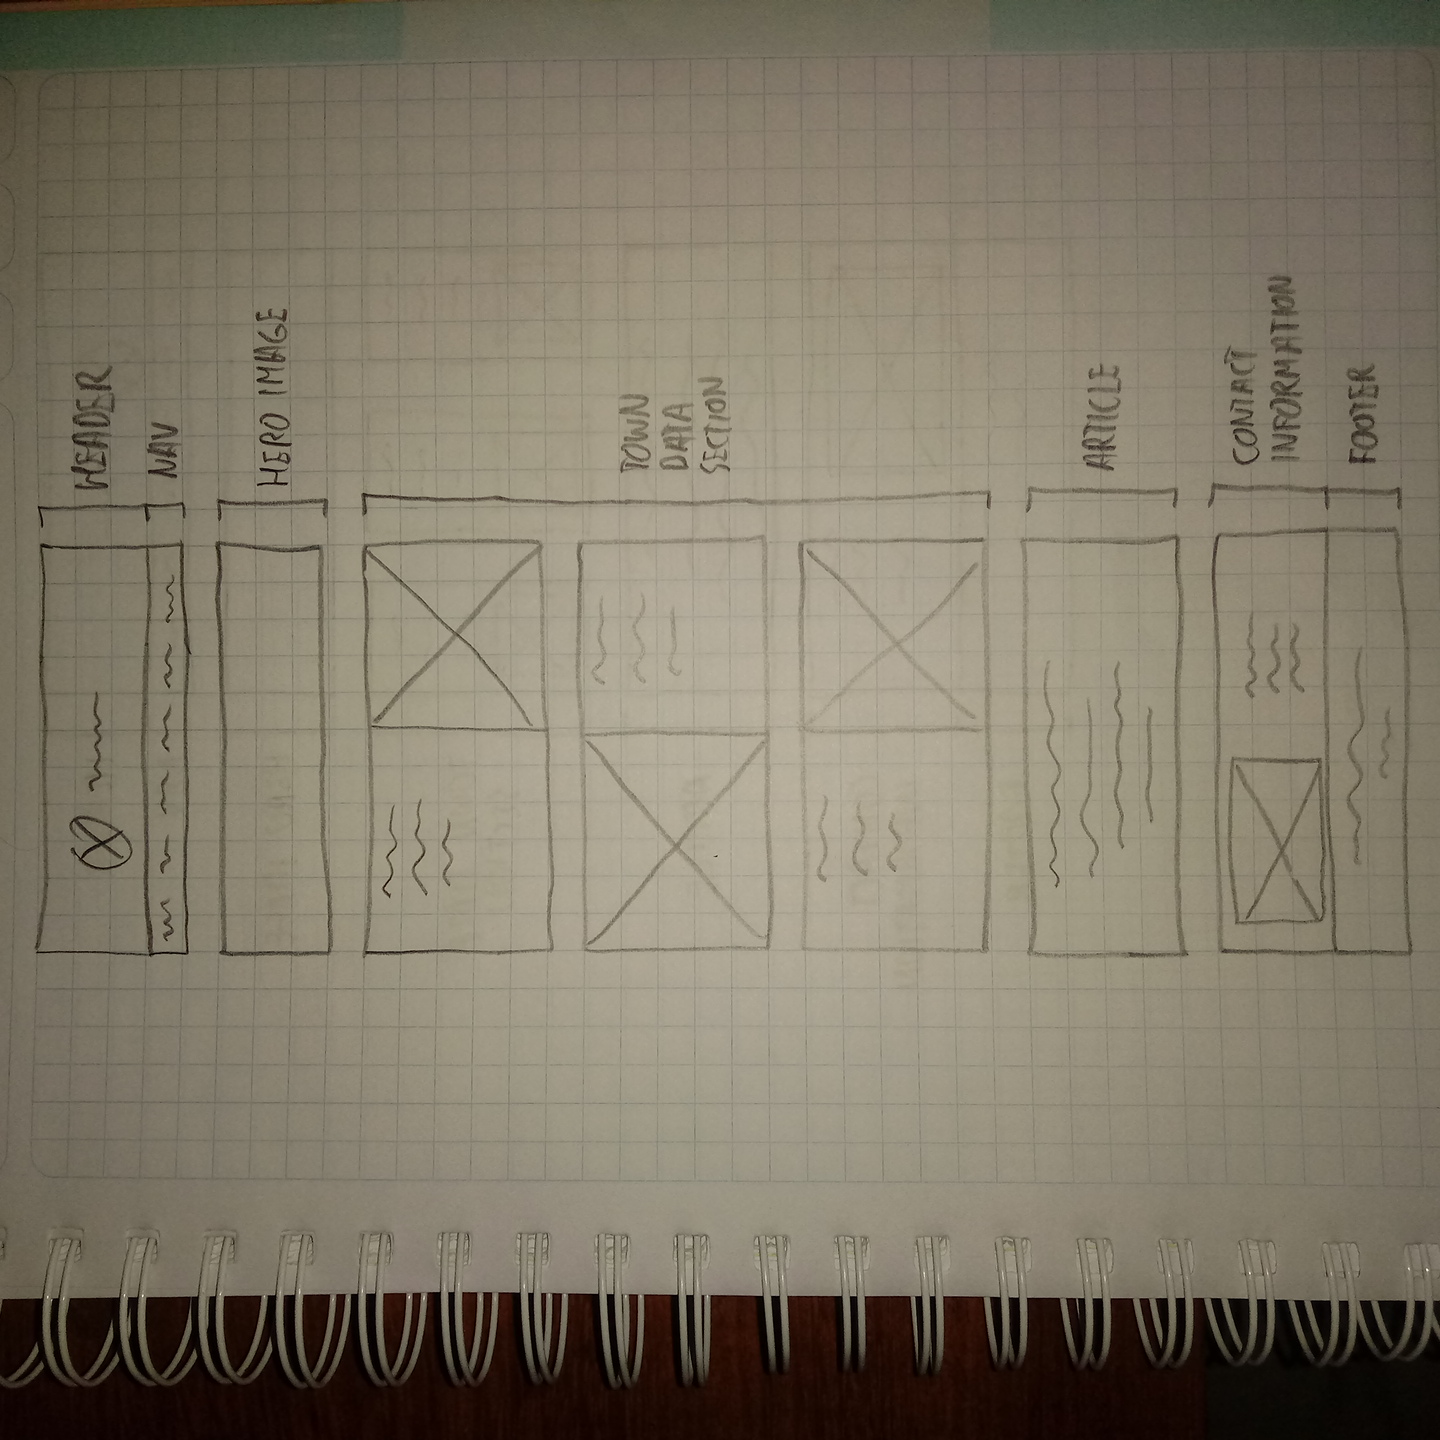 HEADER
NAV
HERO IMAGE
TOWN
DATA
SECTION
ARTICLE
CONTACT
INFORMATION
FOOTER